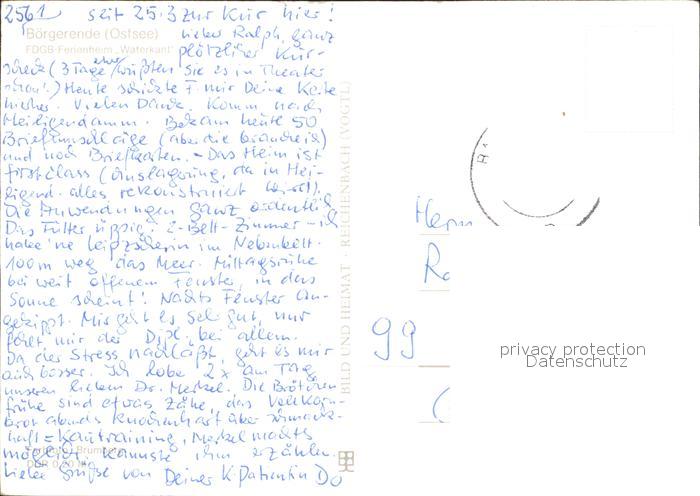 2561 seit 25.3 zur Kur hier!
Börgerende (Ostsee) lieber Ralph, ganz
FDGB-Ferienheim „Waterkant" plötzlicher Kur-
scheck (3 Tage eher wußten Sie es in Theater
schon!) Heute schickte F. mir Deine Karte
hierher. Vielen Dank. Komm nach
Heiligendamm. Bekam heute 50
Briefumschläge (aber die brauche ich)
und noch Briefkarten. - Das Heim ist
first class (Auslagerung, da in Hei-
ligend. alles rekonstruiert wird).
Die Anwendungen ganz ordentlich
Das Futter üppig. 2-Bett-Zimmer - ich
habe 'ne Leipzigerin im Nebenbett.
100m weg das Meer. Mittagsruhe
bei weit offenem Fenster, in das
Sonne scheint! Nachts Fenster an-
gekippt. Mir geht es sehr gut, nur
fehlt mir der Dipl. bei allem.
Da der Stress nachläßt, geht es mir
auch besser. Ich lobe 2x am Tag
unseren lieben Dr. Merkel. Die Brötchen
frühe sind etwas zähe, das Vollkorn-
brot abends knochenhart aber schmack-
haft = Kautraining, Merkel machts
möglich, kannste ihm erzählen.
Liebe Grüße von Deiner K.Patientin Do
Brumberg
DDR 0,20 M
BILD UND HEIMAT · REICHENBACH (VOGTL)
Herrn
R
99
privacy protection
Datenschutz